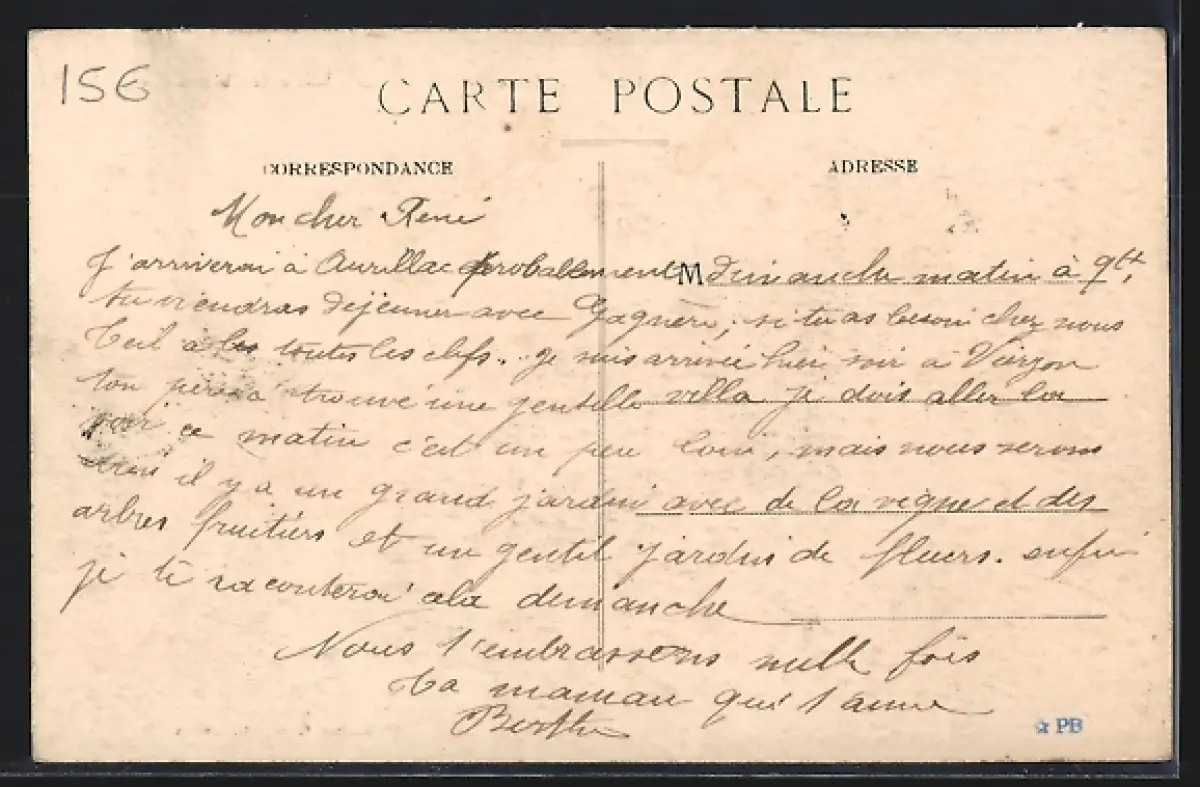 156
CARTE POSTALE
CORRESPONDANCE
ADRESSE
Mon cher René
J'arriverai à Aurillac probablement M dimanche matin à 9h,
tu viendras déjeuner avec Gagnère, si tu as besoin chez nous
à les toutes les clefs. Je suis arrivée hier soir à Vierzon
ton père a trouvé une gentille villa je dois aller la
voir ce matin c'est un peu loin, mais nous serons
bien il y a un grand jardin avec de la vigne et des
arbres fruitiers et un gentil jardin de fleurs. enfin
je te raconterai cela dimanche
Nous t'embrassons mille fois
Ta maman qui t'aime
Berthe
PB